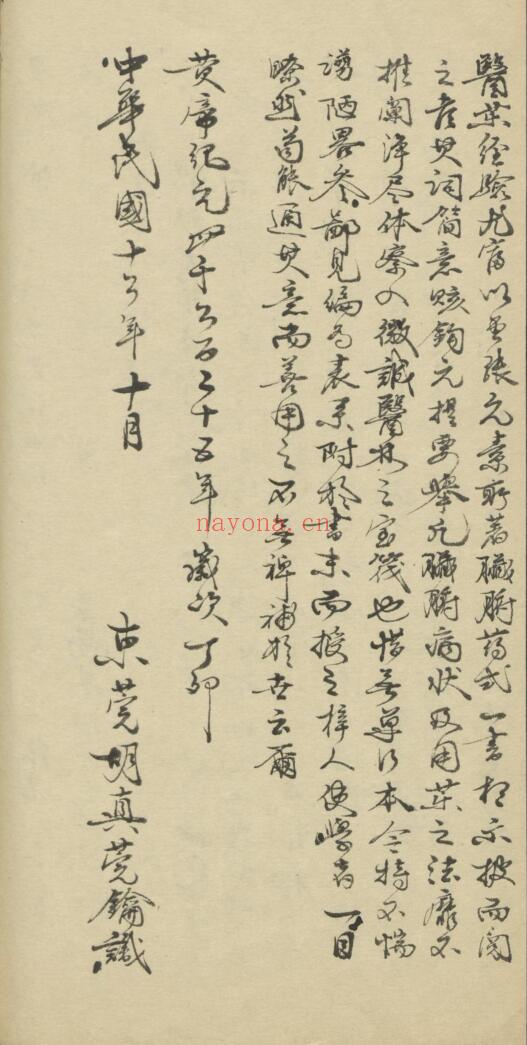 醫業經驗尤富以其張元素所著臟腑药式一書相示披而閱
之覺其詞簡意賅鈎元提要舉凡臟腑病狀及用藥之法靡不
推闡淨尽体察入微誠醫林之宝筏也惜無單行本今特不惴
謭陋畧參鄙見编為表系附於書末而授之梓人使學者一目
瞭然苟能通其意而善用之不無裨補於世云爾
黄帝紀元四千六百二十五年 歲次丁卯
中華民國十六年十月
東莞胡真莞鑰識
nayona.cn